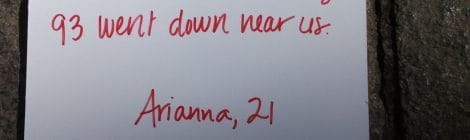 93 went down near us.
Arianna, 21